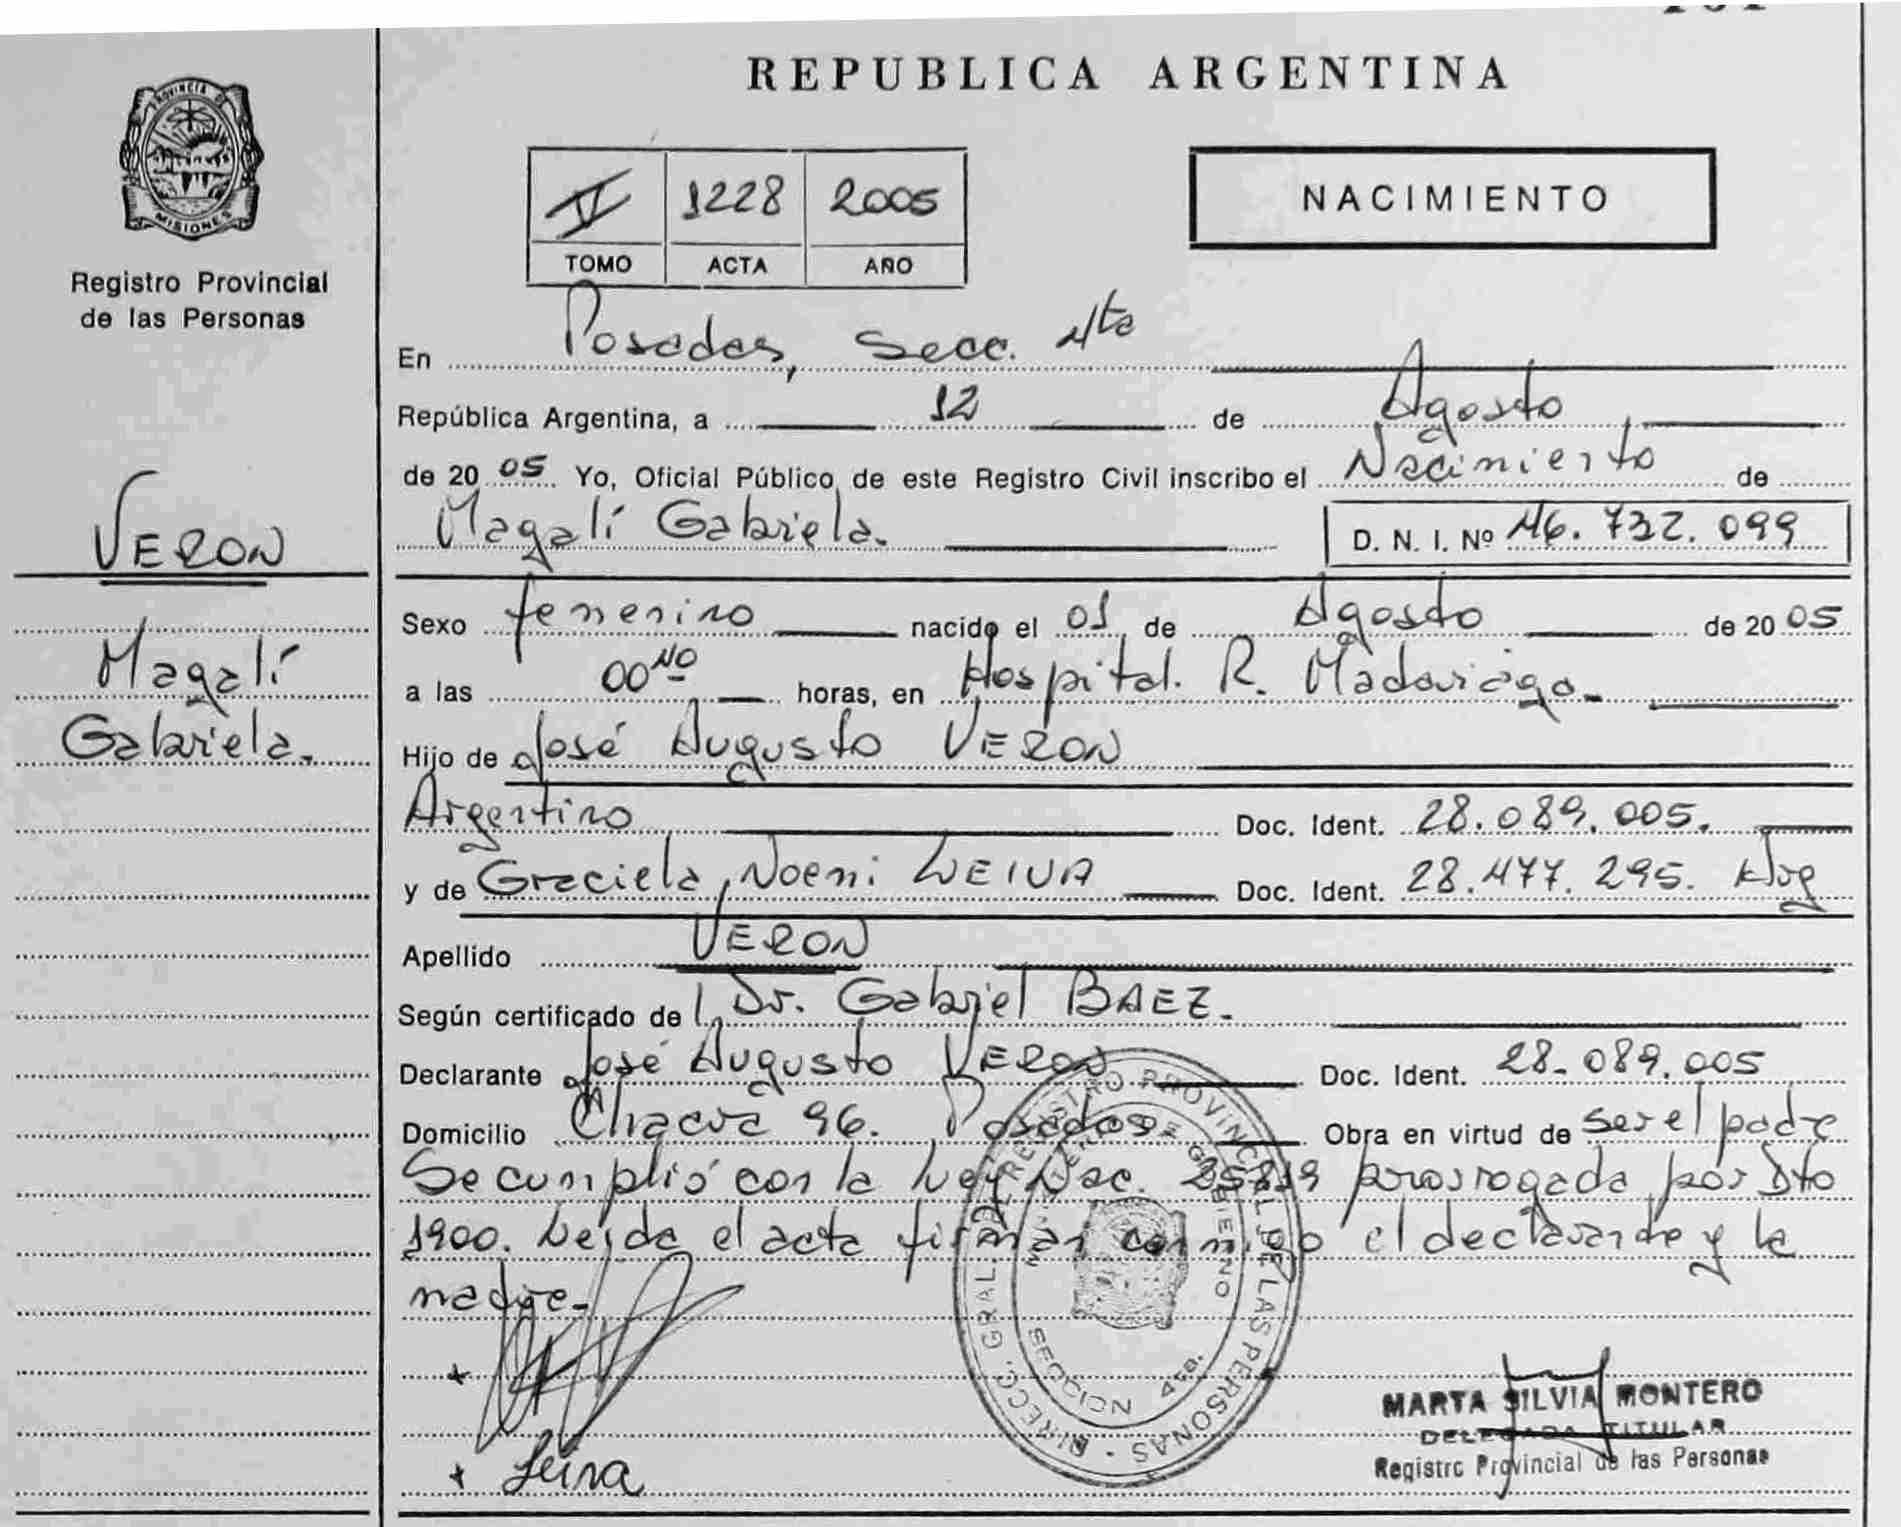 REPUBLICA ARGENTINA
PROVINCIA DE
MISIONES
Registro Provincial
de las Personas
1228 2005
TOMO ACTA AÑO
NACIMIENTO
En Posadas, Secc. 4ta
República Argentina, a 12 de Agosto
de 20 05 Yo, Oficial Público de este Registro Civil inscribo el Nacimiento de
VERON
Magalí Gabriela. D. N. I. Nº 46.732.099
Sexo femenino nacido el 01 de Agosto de 20 05
Magalí
a las 00 40 horas, en Hospital. R. Madariaga.
Gabriela.
Hijo de José Augusto VERON
Argentino Doc. Ident. 28.089.005.
y de Graciela Noemi LEIVA Doc. Ident. 28.477.295. Arg
Apellido VERON
Según certificado de Dr. Gabriel BAEZ.
Declarante José Augusto VERON Doc. Ident. 28.089.005
Domicilio Chacra 96. Posadas Obra en virtud de ser el padre
Se cumplió con la Ley Nac. 25819 prorrogada por Dto
1900. Leida el acta firman conmigo el declarante y la
madre.
DIRECC. GRAL. DE REGISTRO PROVINCIAL DE LAS PERSONAS
MINISTERIO DE GOBIERNO
SECCION 4ta.
Leiva
MARTA SILVIA MONTERO
DELEGADA TITULAR
Registro Provincial de las Personas